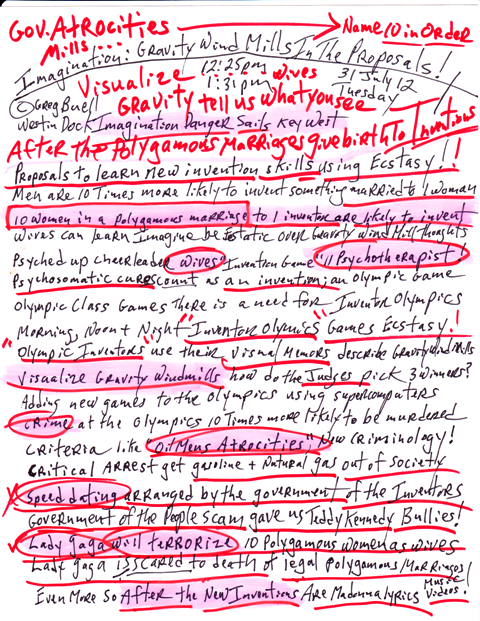 Gov. Atrocities → Name 10 in Order
Mills....
Imagination: Gravity Wind Mills In The Proposals!
Visualize 12:25pm wives 31 July 12
1:31pm Tuesday
© Greg Buell Gravity tell us what you see
Westin Dock Imagination Danger Sails Key West
After the Polygamous Marriages give birth To Inventions
Proposals to learn new invention skills using Ecstasy!!
Men are 10 Times more likely to invent something married to 1 woman
10 women in a polygamous marriage to 1 inventor are likely to invent
Wives can learn Imagine be Estatic over Gravity wind Mill thoughts
Psyched up cheerleader wives" Invention Game "11 Psychotherapist!
Psychosomatic cures count as an invention; an Olympic Game
Olympic Class Games There is a need for Inventor Olympics
Morning, Noon + Night "Inventor Olympics" Games Ecstasy!!
"Olympic Inventors" use their Visual Memors describe Gravity Wind Mills
Visualize Gravity Windmills how do the Judges pick 3 winners?
Adding new games to the Olympics using supercomputers
Crime at the Olympics 10 Times more likely to be murdered
Criteria like "Oil Mens Atrocities," New Criminology!
Critical Arrest get gasoline + Natural gas out of society
Speed dating arranged by the government of the Inventors
Government of the People Scam gave us Teddy Kennedy Bullies!
Lady Gaga will terrorize 10 Polygamous women as wives
Lady Gaga is scared to death of legal polygamous Marriages!
Even More So After the New Inventions Are Madonna lyrics Music Videos!